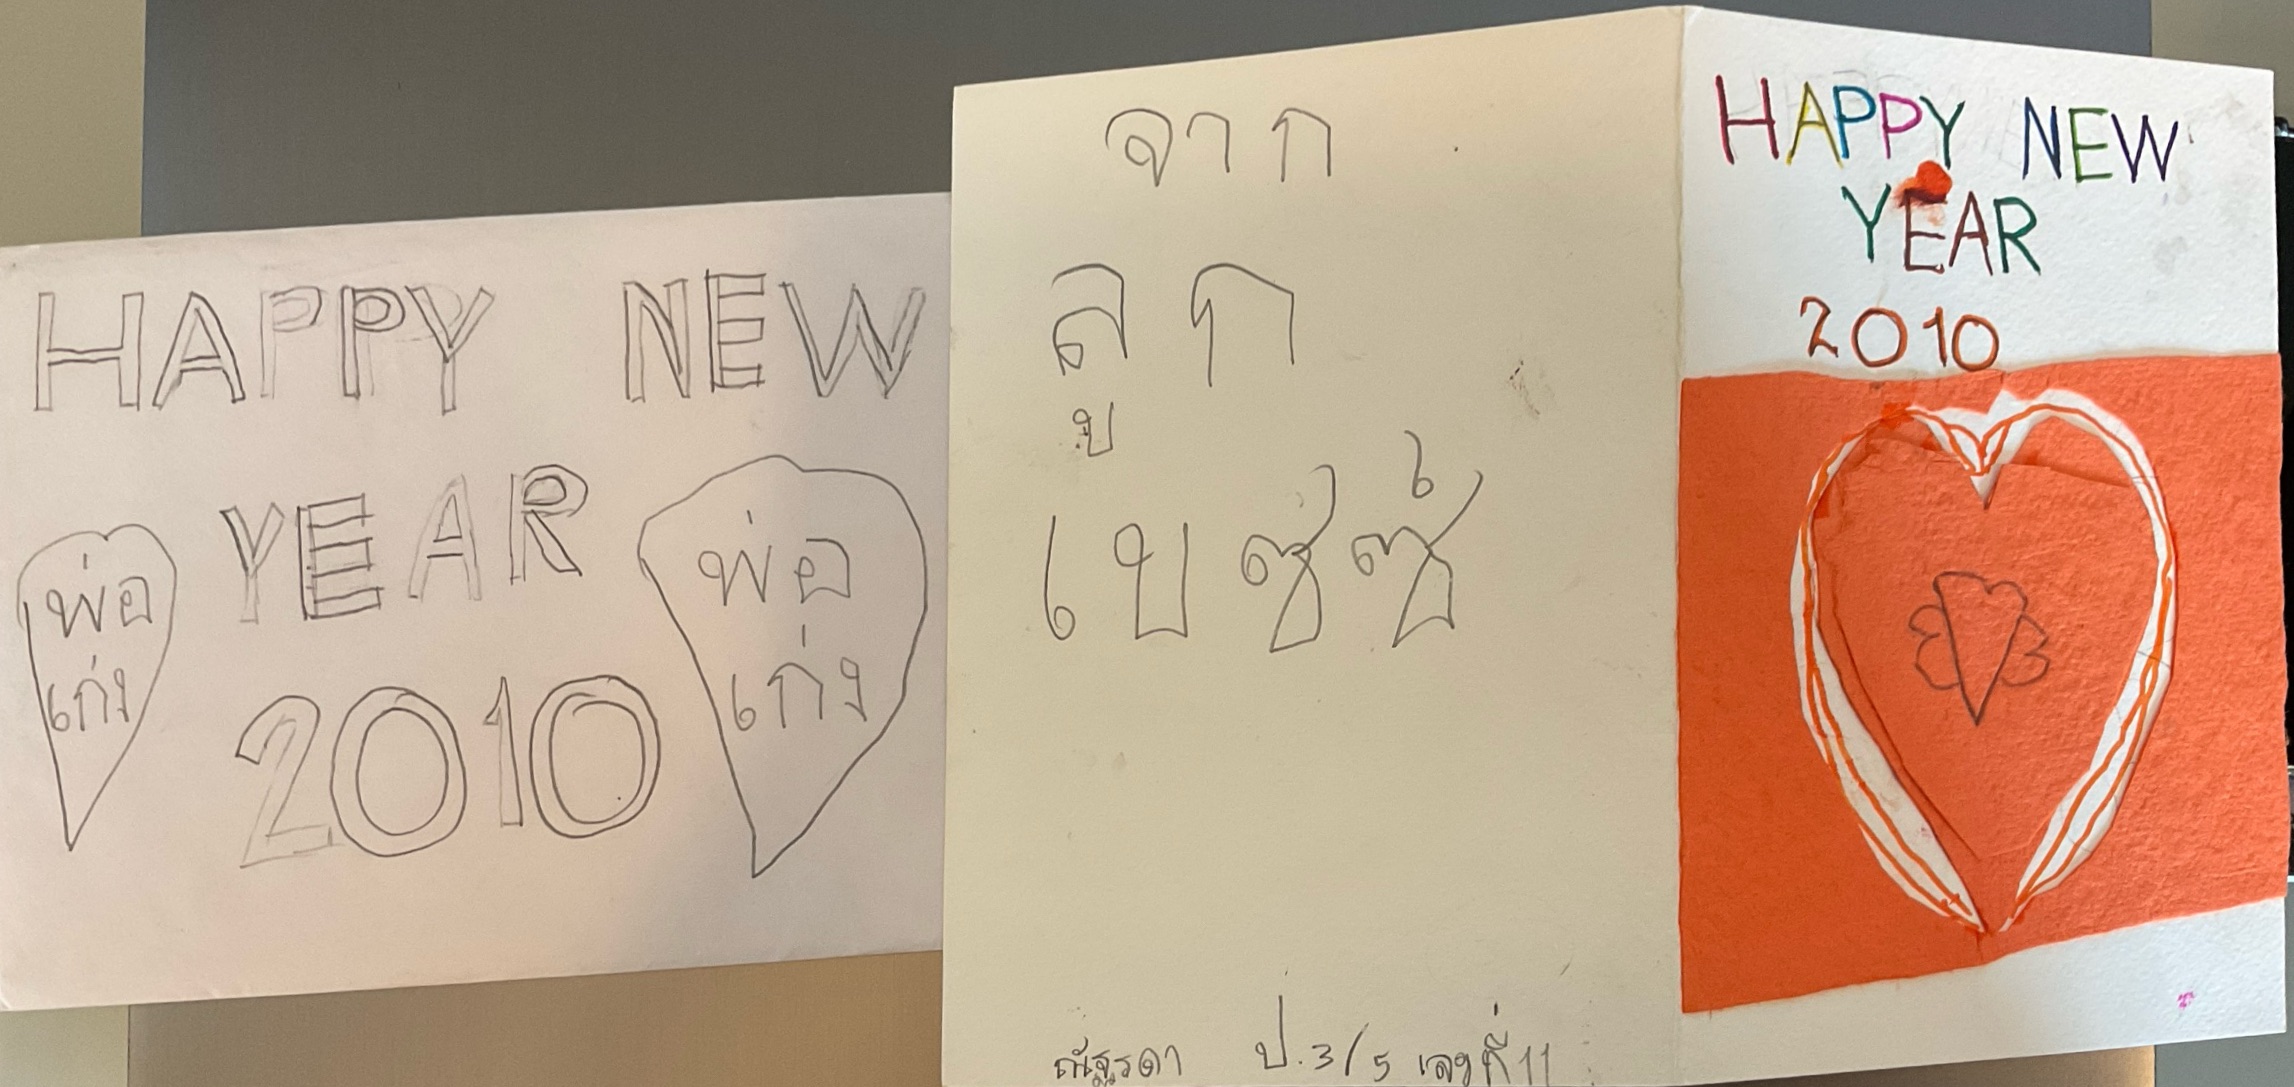 HAPPY NEW
YEAR
2010
พ่อ
เก่ง
พ่อ
เก่ง
จาก
ลูก
ณัฐรดา ป.3/5 เลขที่ 11
HAPPY NEW
YEAR
2010